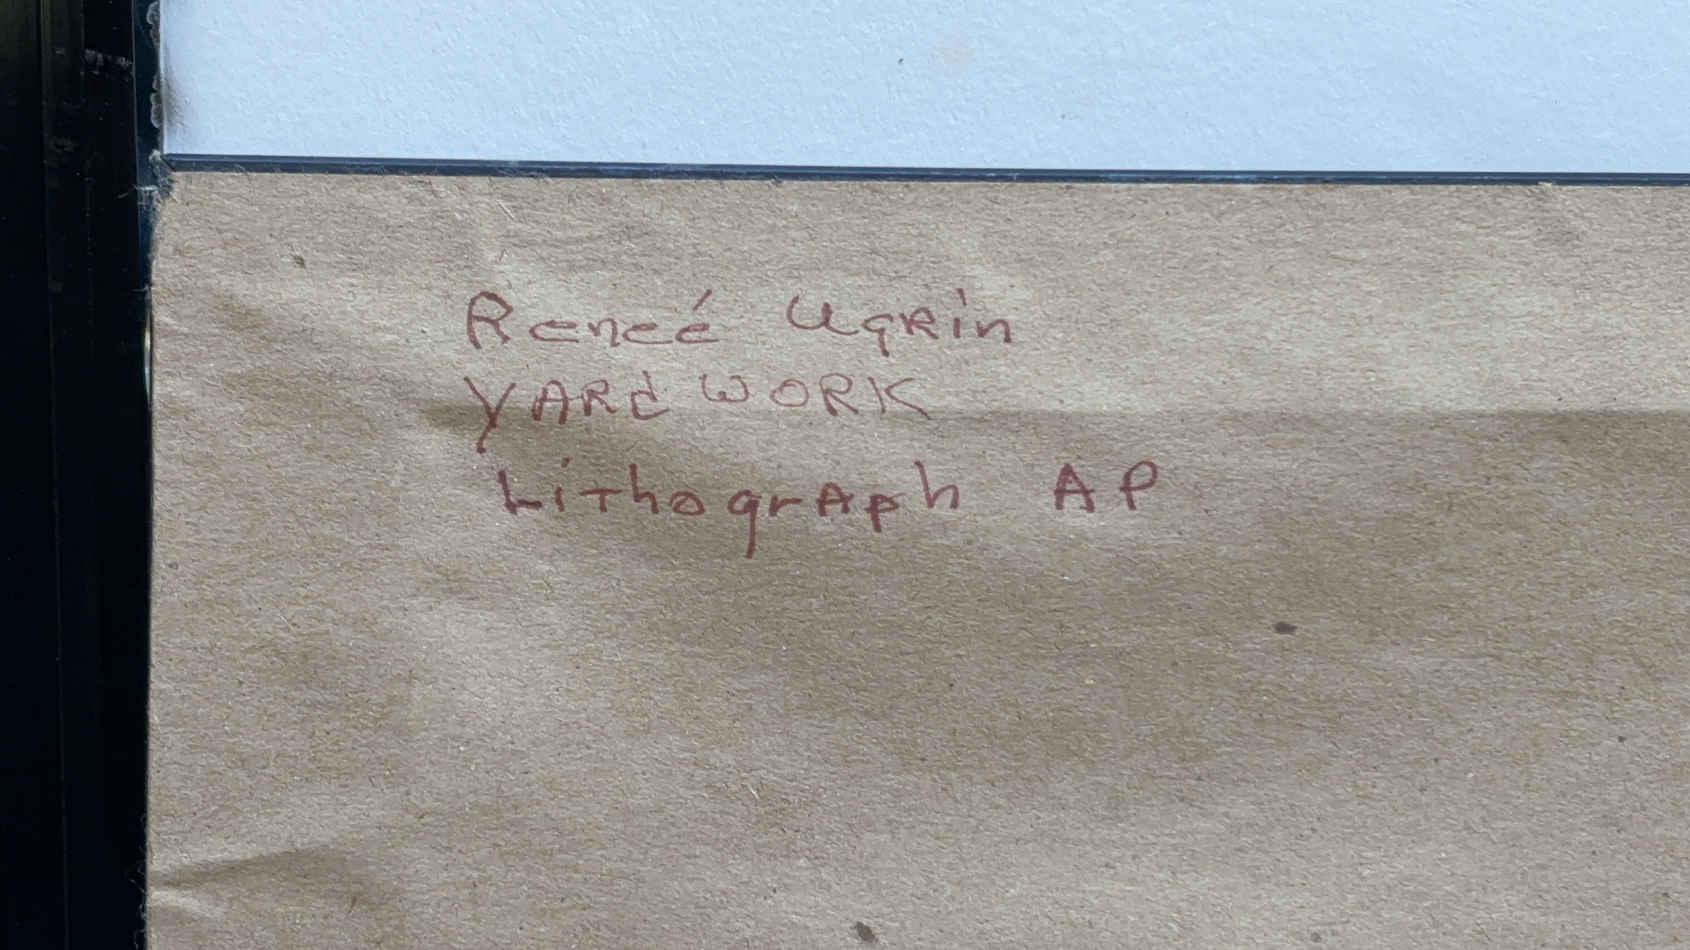 Reneé Ugrin
YARd WORK
Lithograph AP